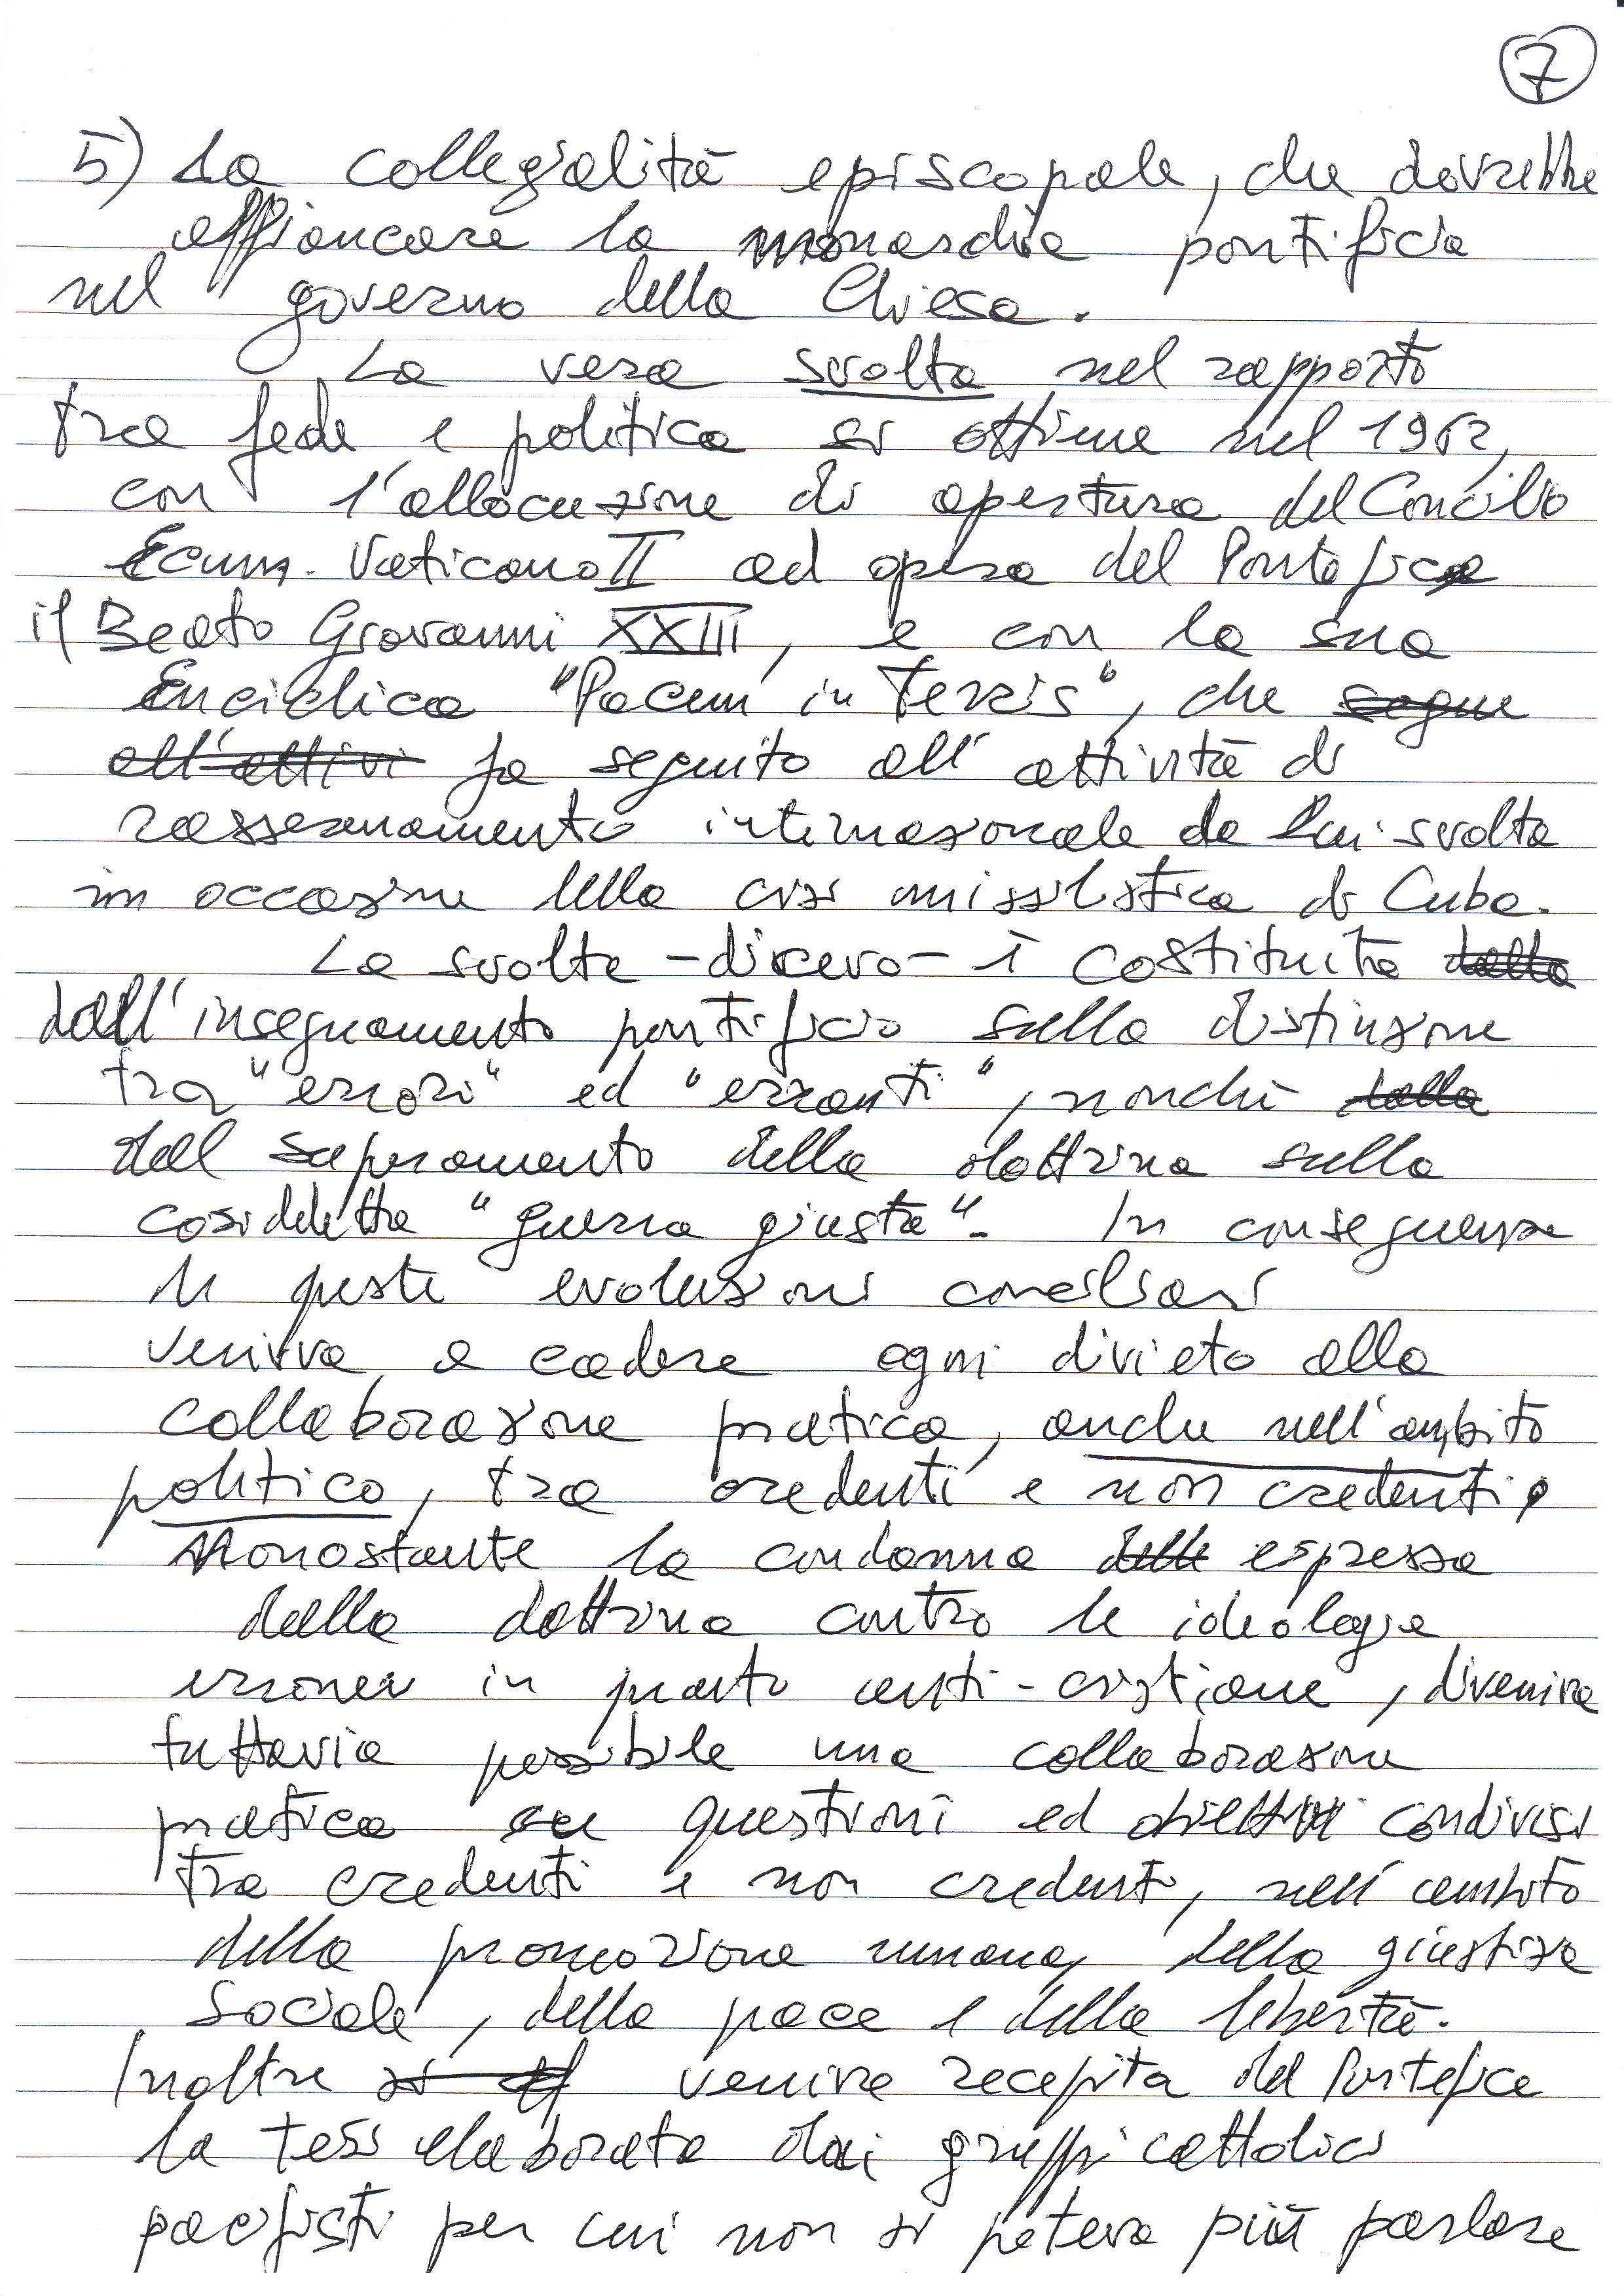 7
5) La collegialità episcopale, che dovrebbe
affiancare la monarchia pontificia
nel governo della Chiesa.
La vera svolta nel rapporto
tra fede e politica si ottiene nel 1962,
con l'allocuzione di apertura del Concilio
Ecum. Vaticano II ad opera del Pontefice
il Beato Giovanni XXIII, e con la sua
Enciclica "Pacem in Terris", che segue
all'attivi fa seguito all'attività di
rasserenamento internazionale da Lui svolta
in occasione della crisi missilistica di Cuba.
La svolta - dicevo - è costituita dalla
dall'insegnamento pontificio sulla distinzione
tra "errori" ed "erranti", nonchè dalla
dal superamento della dottrina sulla
cosiddetta "guerra giusta". In conseguenza
di queste evoluzioni conciliari
veniva a cadere ogni divieto alla
collaborazione pratica, anche nell'ambito
politico, tra credenti e non credenti,
Nonostante la condanna delle espressa
dalla dottrina contro le ideologie
erronee in quanto anti-cristiane, diveniva
tuttavia possibile una collaborazione
pratica su questioni ed obiettivi condivisi
tra credenti e non credenti, nell'ambito
della promozione umana, della giustizia
sociale, della pace e della libertà.
Inoltre si veniva recepita dal Pontefice
la tesi elaborata dai gruppi cattolici
pacifisti per cui non si poteva più parlare